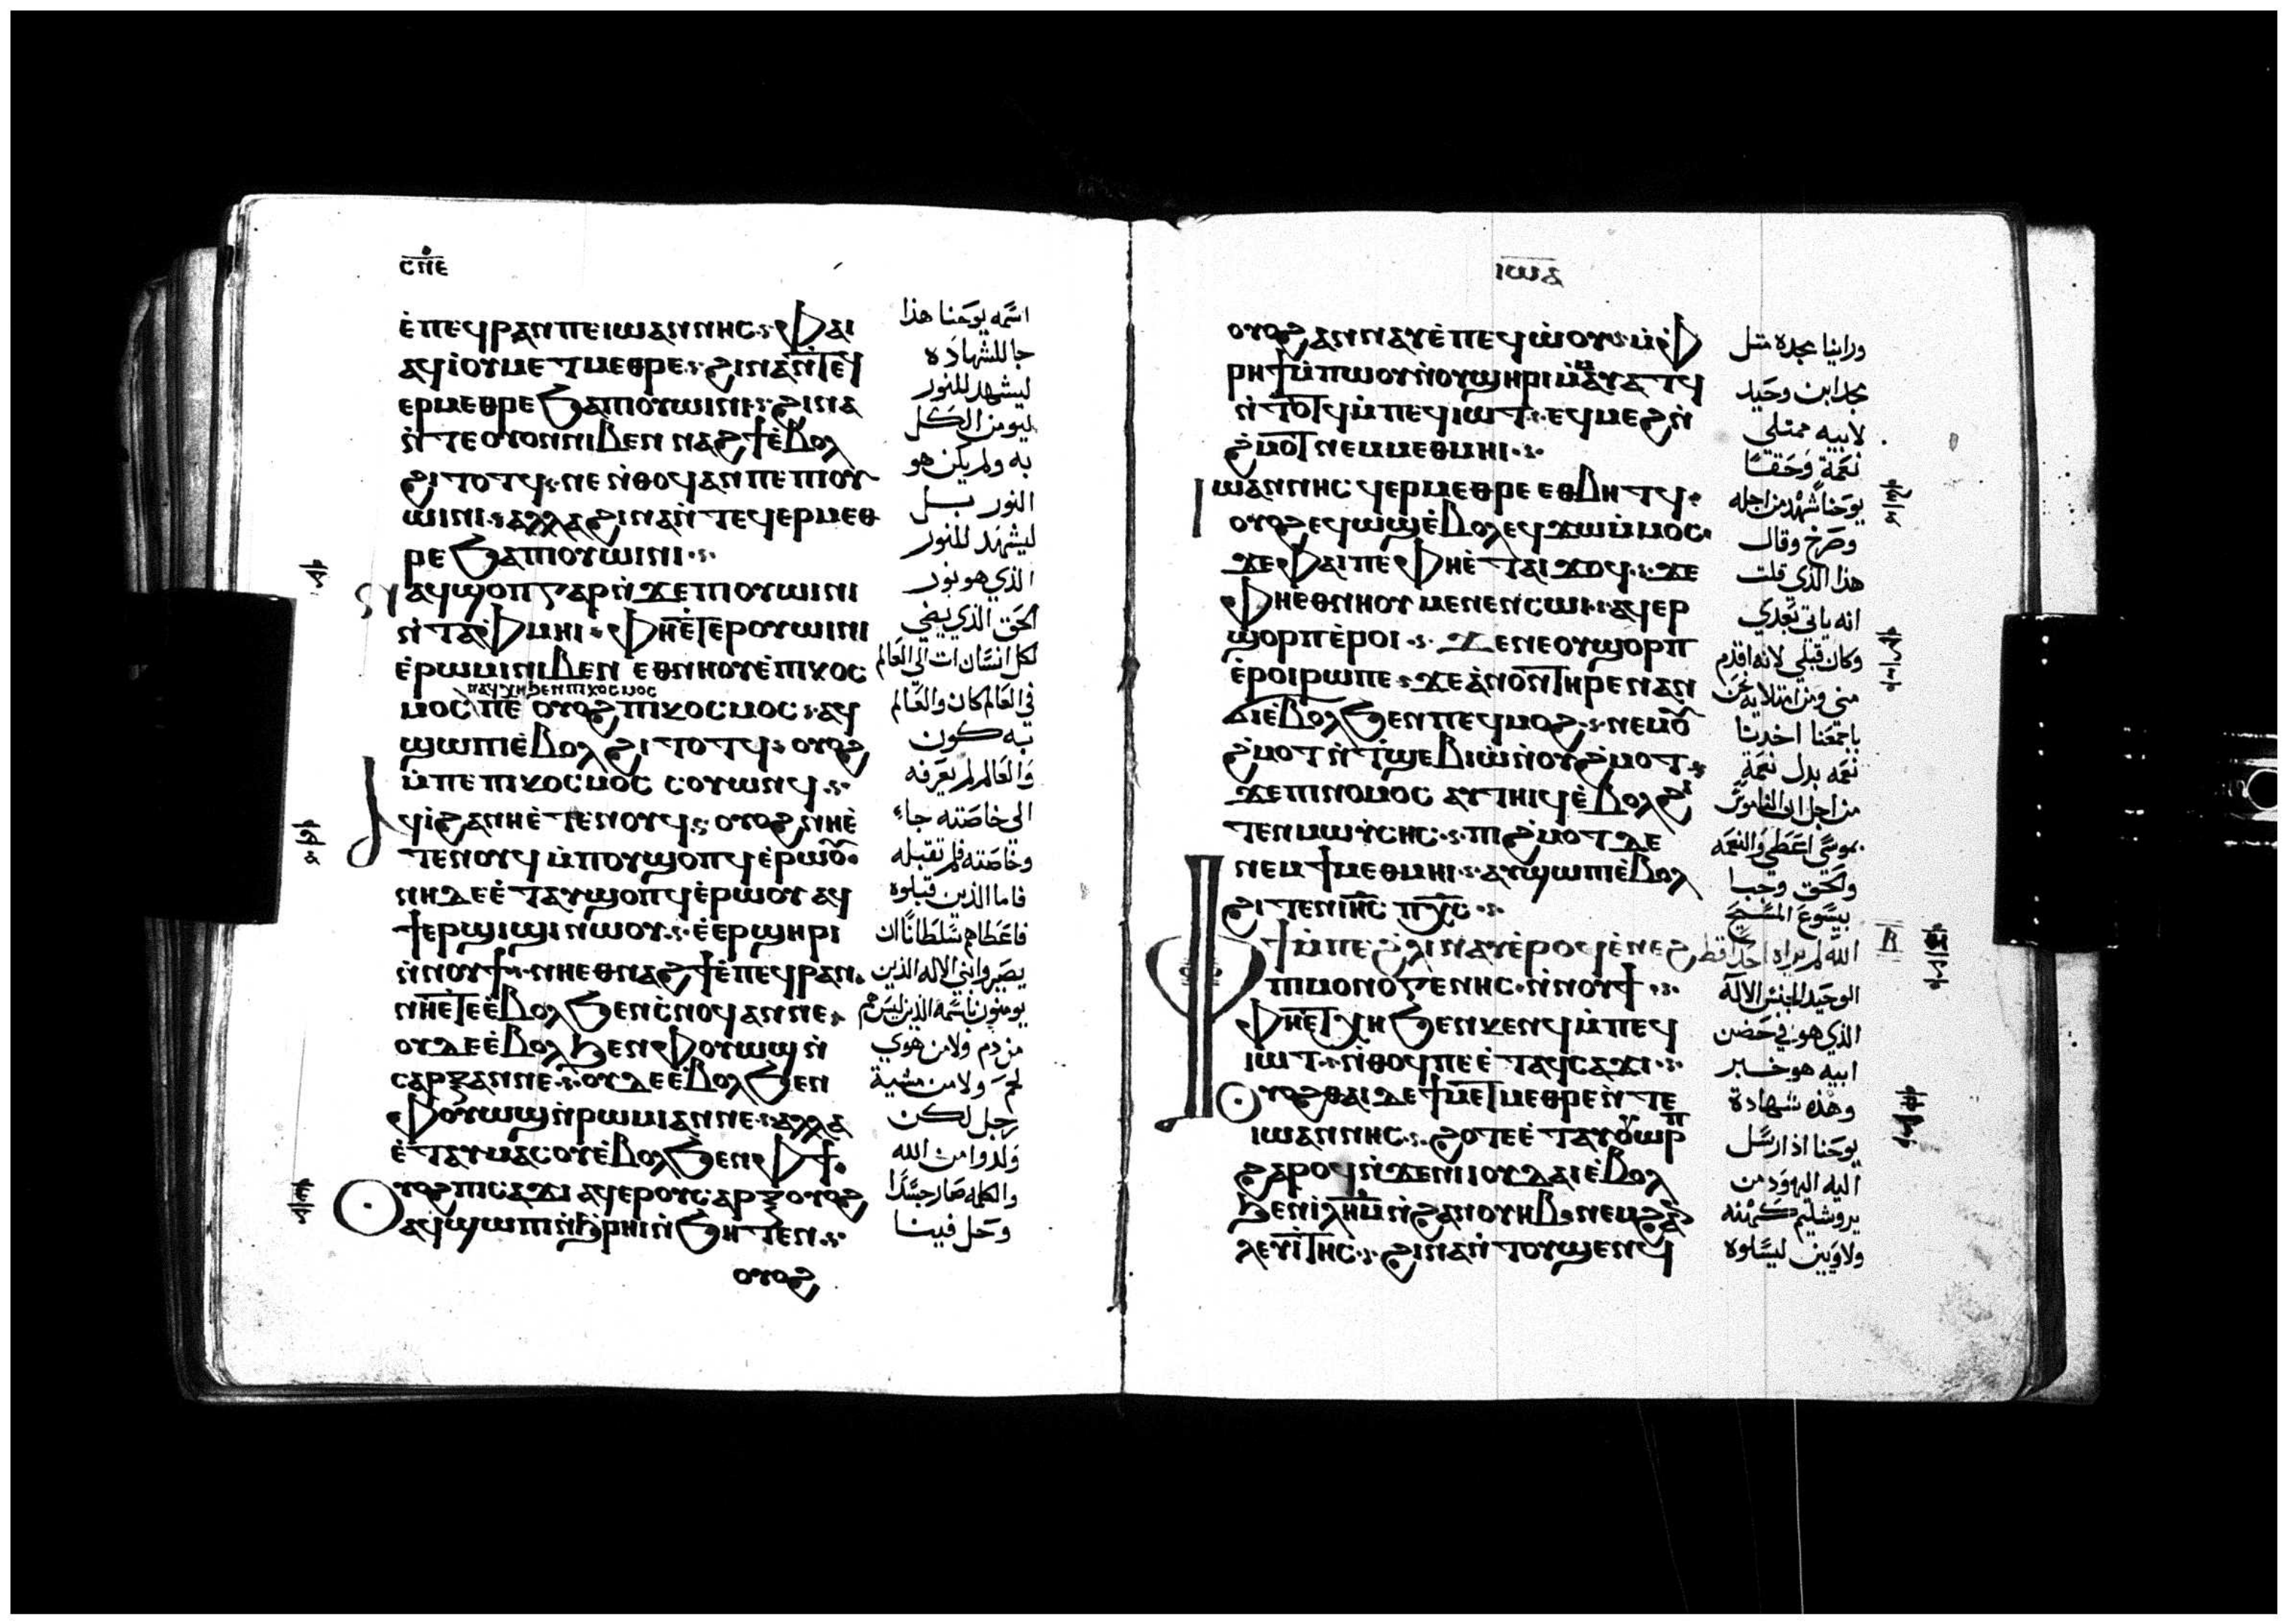 ⲥⲡⲉ
ⲉ̀ⲡⲉϥⲣⲁⲛⲡⲉⲓⲱⲁⲛⲛⲏⲥ: ⲫⲁⲓ
ⲁϥⲓ̀ⲟⲩⲙⲉⲧⲙⲉⲑⲣⲉ: ϩⲓⲛⲁⲛ̀ⲧⲉϥ
ⲉⲣⲙⲉⲑⲣⲉϧⲁⲡⲓⲟⲩⲱⲓⲛⲓ: ϩⲓⲛⲁ
ⲛ̀ⲧⲉⲟⲩⲟⲛⲛⲓⲃⲉⲛ ⲛⲁϩϯⲉ̀ⲃⲟⲗ
ϩⲓⲧⲟⲧϥ: ⲛⲉ ⲛ̀ⲑⲟϥⲁⲛⲡⲉ ⲡⲓⲟⲩ
ⲱⲓⲛⲓ: ⲁⲗⲗⲁϩⲓⲛⲁⲛ̀ⲧⲉϥⲉⲣⲙⲉⲑ
ⲣⲉ ϧⲁⲡⲓⲟⲩⲱⲓⲛⲓ:
ⲛⲁϥϣⲟⲡⲅⲁⲣⲛ̀ϫⲉⲡⲓⲟⲩⲱⲓⲛⲓ
ⲛ̀ⲧⲁⲫⲙⲏⲓ: ⲫⲏⲉⲧⲉⲣⲟⲩⲱⲓⲛⲓ
ⲉ̀ⲣⲱⲙⲓⲛⲓⲃⲉⲛ ⲉⲑⲛⲏⲟⲩⲉ̀ⲡⲓⲕⲟⲥ
ⲛⲁϥⲭⲏϧⲉⲛⲡⲓⲕⲟⲥⲙⲟⲥ
ⲙⲟⲥ ⲡⲉ ⲟⲩⲟϩ ⲡⲓⲕⲟⲥⲙⲟⲥ: ⲁϥ
ϣⲱⲡⲓⲉ̀ⲃⲟⲗϩⲓⲧⲟⲧϥ: ⲟⲩⲟϩ
ⲙ̀ⲡⲉ ⲡⲓⲕⲟⲥⲙⲟⲥ ⲥⲟⲩⲱⲛϥ:
ⲁϥⲓ̀ϩⲁⲛⲏⲉ̀ⲧⲉⲛⲟⲩϥ: ⲟⲩⲟϩⲛⲏⲉ̀
ⲧⲉⲛⲟⲩϥ ⲙ̀ⲡⲟⲩϣⲟⲡϥⲉ̀ⲣⲱⲟⲩ:
ⲛⲏⲇⲉⲉ̀ⲧⲁⲩϣⲟⲡϥⲉ̀ⲣⲱⲟⲩ ⲁϥ
ϯⲉⲣϣⲓϣⲓⲛⲱⲟⲩ: ⲉ̀ⲉⲣϣⲏⲣⲓ
ⲛ̀ⲛⲟⲩϯ: ⲛⲏⲉⲑⲛⲁϩϯⲉ̀ⲡⲉϥⲣⲁⲛ:
ⲛⲏⲉⲧⲉⲉ̀ⲃⲟⲗ ϧⲉⲛⲥ̀ⲛⲟϥⲁⲛⲛⲉ:
ⲟⲩⲇⲉⲉ̀ⲃⲟⲗ ϧⲉⲛⲫⲟⲩⲱϣⲛ̀
ⲥⲁⲣⲝⲁⲛⲛⲉ: ⲟⲩⲇⲉⲉ̀ⲃⲟⲗϧⲉⲛ
ⲫⲟⲩⲱϣⲛ̀ⲣⲱⲙⲓⲁⲛⲛⲉ: ⲁⲗⲗⲁ
ⲉ̀ⲧⲁⲩⲙⲁⲥⲟⲩⲉ̀ⲃⲟⲗϧⲉⲛⲫϯ:
ⲟⲩⲟϩⲡⲓⲥⲁϫⲓ ⲁϥⲉⲣⲟⲩⲥⲁⲣⲝⲟⲩⲟϩ
ⲁϥϣⲱⲡⲓⲛ̀ϧⲣⲏⲓⲛ̀ϧⲏⲧⲉⲛ:
ⲟⲩⲟϩ
اسمه يوحنا هذا
جا للشهاده
ليشهد للنور
ليومن الكل
به ولم يكن هو
النور بل
ليشهد للنور
الذي هو نور
الحق الذي يضي
لكل انسان ات الى العالم
في العالم كان والعالم
به كون
والعالم لم يعرفه
الى خاصته جاء
وخاصته فلم تقبله
فاما الذين قبلوه
فاعطاهم سلطانا ان
يصيروا بني الاله الذين
يومنون باسمه الذين ليس هم
من دم ولا من هوي
لحم ولا من مشية
رجل لكن
ولدوا من الله
والكلمه صار جسدا
وحل فينا
ⲓⲱⲁ
ⲟⲩⲟϩⲁⲛⲛⲁⲩⲉ̀ⲡⲉϥⲱ̀ⲟⲩ: ⲙ̀ⲫ
ⲣⲏϯⲙ̀ⲡⲱⲟⲩⲛ̀ⲟⲩϣⲏⲣⲓⲙ̀ⲙⲁⲩⲁⲧϥ
ⲛ̀ⲧⲟⲧϥⲙ̀ⲡⲉϥⲓⲱⲧ: ⲉϥⲙⲉϩⲛ̀
ϩ̀ⲙⲟⲧⲛⲉⲙⲙⲉⲑⲙⲏⲓ:
ⲓⲱⲁⲛⲛⲏⲥ ϥⲉⲣⲙⲉⲑⲣⲉ ⲉⲑⲃⲏⲧϥ:
ⲟⲩⲟϩⲉϥⲱϣⲉ̀ⲃⲟⲗⲉϥϫⲱⲙ̀ⲙⲟⲥ:
ϫⲉⲫⲁⲓⲡⲉⲫⲏⲉ̀ⲧⲁⲓϫⲟϥ: ϫⲉ
ⲫⲏⲉⲑⲛⲏⲟⲩ ⲙⲉⲛⲉⲛⲥⲱⲓ: ⲁϥⲉⲣ
ϣⲟⲣⲡⲉ̀ⲣⲟⲓ: ϫⲉⲛⲉⲟⲩϣⲟⲣⲡ
ⲉ̀ⲣⲟⲓⲣⲱⲡⲉ: ϫⲉⲁ̀ⲛⲟⲛⲧⲏⲣⲉⲛⲁⲛ
ϭⲓⲉ̀ⲃⲟⲗϧⲉⲛⲡⲉϥⲙⲟϩ: ⲛⲉⲙⲟⲩ
ϩ̀ⲙⲟⲧⲛ̀ⲧ̀ϣⲉⲃⲓⲱ̀ⲛ̀ⲟⲩϩ̀ⲙⲟⲧ:
ϫⲉⲡⲓⲛⲟⲙⲟⲥ ⲁⲩⲧⲏⲓϥⲉ̀ⲃⲟⲗϩⲓ
ⲧⲉⲛⲙⲱⲩ̀ⲥⲏⲥ: ⲡⲓϩ̀ⲙⲟⲧⲇⲉ
ⲛⲉⲙϯⲙⲉⲑⲙⲏⲓ: ⲁⲩϣⲱⲡⲓⲉ̀ⲃⲟⲗ
ϩⲓⲧⲉⲛⲓⲏⲥ ⲡⲭⲥ:
ⲫϯⲙ̀ⲡⲉϩ̀ⲗⲓⲛⲁⲩⲉ̀ⲣⲟϥⲉ̀ⲛⲉϩ
ⲡⲓⲙⲟⲛⲟⲅⲉⲛⲏⲥ: ⲛ̀ⲛⲟⲩϯ:
ⲫⲏⲉⲧⲭⲏ ϧⲉⲛⲕⲉⲛϥⲙ̀ⲡⲉϥ
ⲓⲱⲧ: ⲛ̀ⲑⲟϥⲡⲉⲉ̀ⲧⲁϥⲥⲁϫⲓ:
ⲟⲩⲟϩⲑⲁⲓⲇⲉϯⲙⲉⲧⲙⲉⲑⲣⲉⲛ̀ⲧⲉ
ⲓⲱⲁⲛⲛⲏⲥ: ϩⲟⲧⲉⲉ̀ⲧⲁⲩⲟⲩⲱⲣⲡ
ϩⲁⲣⲟϥⲛ̀ϫⲉⲛⲓⲓⲟⲩⲇⲁⲓⲉ̀ⲃⲟⲗ
ϧⲉⲛⲓⲗⲏⲙ̀ⲛ̀ϩⲁⲛⲟⲩⲏⲃ: ⲛⲉⲙϩⲁⲛ
ⲗⲉⲩⲓⲧⲏⲥ: ϩⲓⲛⲁⲛ̀ⲧⲟⲩϣⲉⲛϥ
وراينا مجده مثل
مجد ابن وحيد
لابيه ممتلي
نعمة وحقا
يوحنا شهد من اجله
وصرخ وقال
هذا الذي قلت
انه ياتي بعدي
وكان قبلي لانه اقدم
مني ومن امتلايه نحن
باجمعنا اخدنا
نعمه بدل نعمة
من اجل ان الناموس
بموسي اعطي والنعمه
والحق وجبا
بيسوع المسيح
الله لم يراه احد قط
الوحيد الجنس الاله
الذي هو في حضن
ابيه هو خبر
وهذه شهادة
يوحنا اذ ارسل
اليه اليهود من
يروشليم كهنه
ولاويين ليسلوه